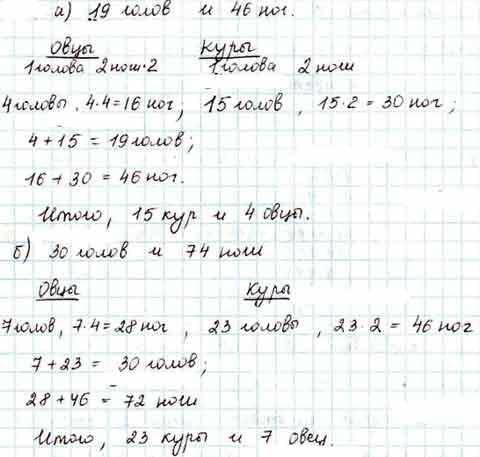 а) 19 голов и 46 ног.
Овцы Куры
1 голова 2 ноги·2 1 голова 2 ноги
4 головы, 4·4=16 ног; 15 голов, 15·2 = 30 ног;
4 + 15 = 19 голов;
16 + 30 = 46 ног.
Итого, 15 кур и 4 овцы.
б) 30 голов и 74 ноги
Овцы Куры
7 голов, 7·4=28 ног, 23 головы, 23·2 = 46 ног
7 + 23 = 30 голов;
28 + 46 = 72 ноги
Итого, 23 куры и 7 овец.